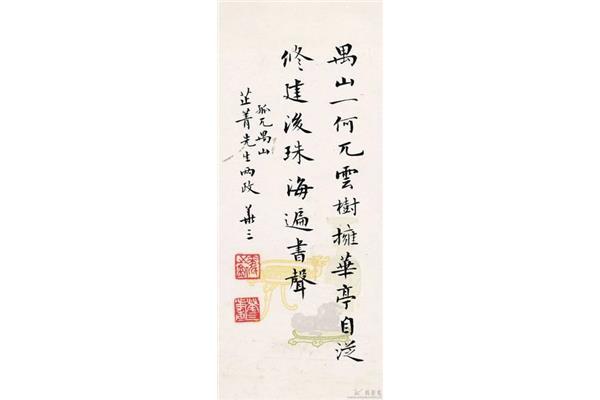 禺山一何兀雲樹擁華亭自從
修建後珠海遍書聲
孤兀禺山
芷菁先生兩政 華三